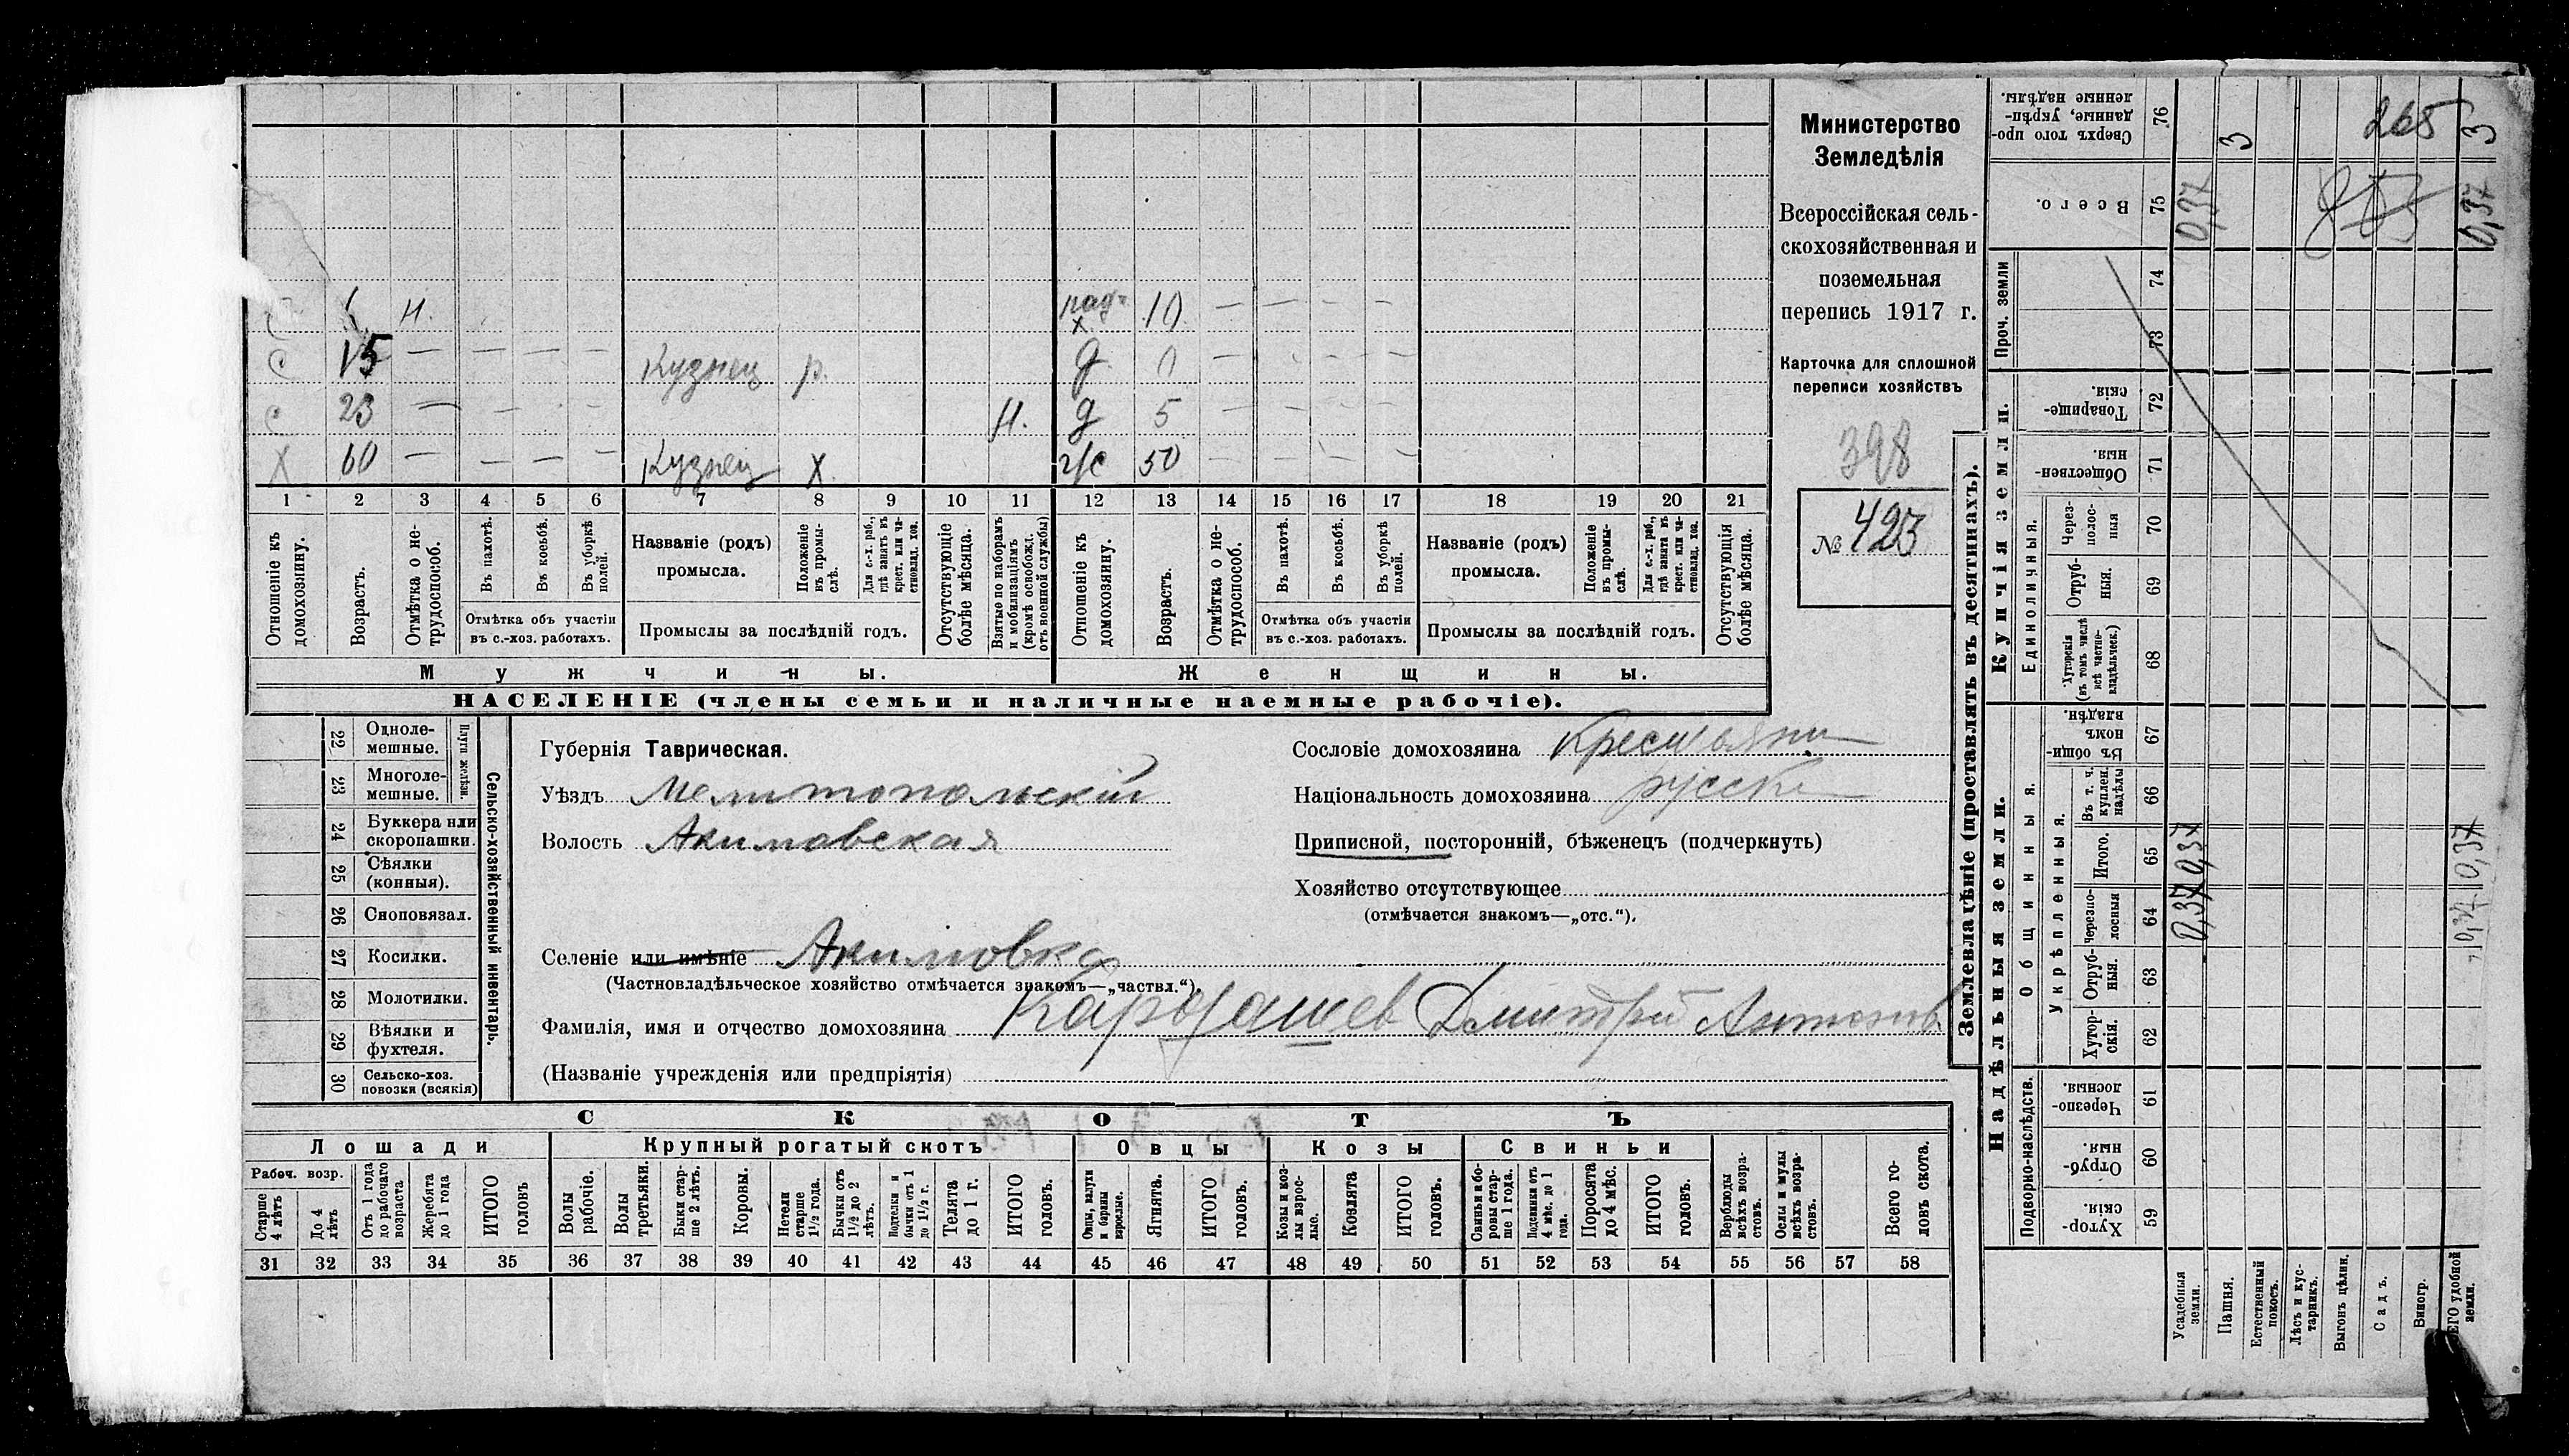 С 1 н. над- х. 10 — — — —
С 15 — — — — Кузнец р. д 0 — — — —
с 23 — — — — Н. д 5 — — — —
Х 60 — — — — Кузнец Х ж 50 — — — —
1 2 3 4 5 6 7 8 9 10 11 12 13 14 15 16 17 18 19 20 21
Отношеніе къ домохозяину.
Возрастъ.
Отмѣтка о не-
трудоспособ.
Въ пахотѣ.
Въ косьбѣ.
Въ уборкѣ
полей.
Отмѣтка объ участіи
въ с.-хоз. работахъ.
Названіе (родъ)
промысла.
Положеніе
въ промы-
слѣ.
Для с.-х. раб.,
гдѣ занятъ въ
крест. или ча-
стновлад. хоз.
Промыслы за послѣдній годъ.
Отсутствующіе
болѣе мѣсяца.
Взятые по наборамъ
и мобилизаціямъ
(кромѣ освобожд.
отъ военной службы)
Отношеніе къ
домохозяину.
Возрастъ.
Отмѣтка о не-
трудоспособ.
Въ пахотѣ.
Въ косьбѣ.
Въ уборкѣ
полей.
Отмѣтка объ участіи
въ с.-хоз. работахъ.
Названіе (родъ)
промысла.
Положеніе
въ промы-
слѣ.
Для с.-х. раб.,
гдѣ занята въ
крест. или ча-
стновлад. хоз.
Промыслы за послѣдній годъ.
Отсутствующія
болѣе мѣсяца.
Мужчины.
Женщины.
НАСЕЛЕНІЕ (члены семьи и наличные наемные рабочіе).
Министерство
Земледѣлія
Всероссійская сель-
скохозяйственная и
поземельная
перепись 1917 г.
Карточка для сплошной
переписи хозяйствъ
398
№ 423
22 Одноле-
мешные.
23 Многоле-
мешные.
Плуги желѣзн.
24 Буккера или
скоропашки.
25 Сѣялки
(конныя).
26 Сноповязал.
27 Косилки.
28 Молотилки.
29 Вѣялки и
фухтеля.
30 Сельско-хоз.
повозки (всякія)
Сельско-хозяйственный инвентарь.
Губернія Таврическая.
Уѣздъ Мелитопольскій
Волость Акимовская
Сословіе домохозяина Крестьянин
Національность домохозяина русск
Приписной, посторонній, бѣженецъ (подчеркнуть)
Хозяйство отсутствующее
(отмѣчается знакомъ—„отс.“).
Селеніе или имѣніе Акимовка
(Частновладѣльческое хозяйство отмѣчается знакомъ—„частвл.“).
Фамилія, имя и отчество домохозяина Кардашев Дмитрий Антонов
(Названіе учрежденія или предпріятія)
СКОТЪ
Лошади
Крупный рогатый скотъ
Овцы
Козы
Свиньи
Рабоч. возр.
Старше
4 лѣтъ
До 4
лѣтъ
Отъ 1 года
до рабочаго
возраста
Жеребята
до 1 года
ИТОГО
головъ
Волы
рабочіе.
Волы
третьяки.
Быки стар-
ше 2 лѣтъ.
Коровы.
Нетели
старше
1½ года.
Бычки отъ
1½ до 2
лѣтъ.
Подтелки и
бычки отъ 1
до 1½ г.
Телята
до 1 г.
ИТОГО
головъ.
Овцы, валухи
и бараны
взрослые.
Ягнята.
ИТОГО
головъ.
Козы и коз-
лы взрос-
лые.
Козлята
ИТОГО
головъ.
Свиньи и бо-
ровы стар-
ше 1 года.
Подсвинки отъ
4 мѣс. до 1
года.
Поросята
до 4 мѣс.
ИТОГО
головъ.
Верблюды
всѣхъ возра-
стовъ.
Ослы и мулы
всѣхъ возра-
стовъ.
Всего го-
ловъ скота.
31 32 33 34 35 36 37 38 39 40 41 42 43 44 45 46 47 48 49 50 51 52 53 54 55 56 57 58
Землевладѣніе (проставлять въ десятинахъ).
Надѣльныя земли.
Купчія земли.
Проч. земли
Подворно-наслѣдств.
Общинныя.
Укрѣпленныя.
Единоличныя.
Сверхъ того про-
данные, укрѣп-
ленные надѣлы. 76
Всего. 75
74
73
Товарище-
скія. 72
Обществен-
ныя. 71
Через-
полос-
ныя 70
Отруб-
ныя. 69
Хуторскія
(въ томъ числѣ
всѣ частно-
владѣльческ.) 68
Въ общин-
номъ
владѣн. 67
Въ т. ч.
куплен.
надѣлы 66
Итого. 65
Черезпо-
лосныя 64
Отруб-
ныя. 63
Хутор-
скія. 62
Черезпо-
лосныя. 61
Отруб-
ныя. 60
Хутор-
скія. 59
Усадебныя
земли.
Пашня.
Естественный
покосъ.
Лѣсъ и кус-
тарникъ.
Выгонъ цѣлин.
Садъ.
Виногр.
ЕГО удобной
земли.
3 265 3
0,37 0,37
0,37 0,37
0,37 0,37